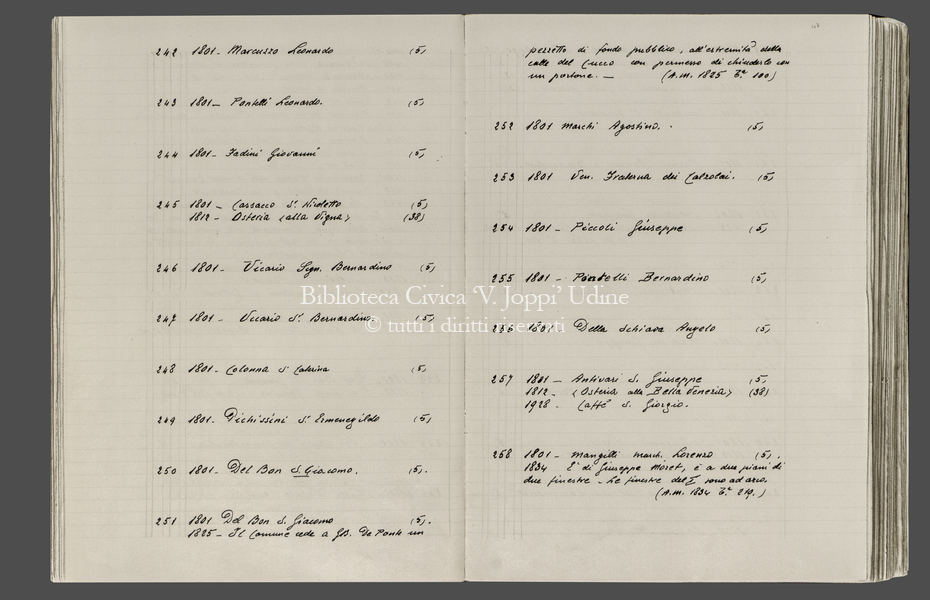 242 1801- Marcuzzo Leonardo (5)
243 1801- Pontelli Leonardo. (5)
244 1801- Fadini Giovanni (5)
245 1801- Cassacco Sr Nicoletto (5)
1812- Osteria (alla Vigna) (38)
246 1801- Vicario Sign. Bernardino (5)
247 1801- Vicario Sr Bernardino. (5)
248 1801- Colonna Sr Caterina (5)
249 1801- Pichissini Sr Ermenegildo (5)
250 1801- Del Bon S. Giacomo. (5).
251 1801 Del Bon S. Giacomo (5).
1825- Il Comune cede a GB. De Ponte un
pezzetto di fondo pubblico, all'estremità della
calle del Cucco con permesso di chiuderlo con
un portone. — (A.M. 1825 100)
252 1801 Marchi Agostino. (5)
253 1801 Ven. Fraterna dei Calzolai. (5)
254 1801- Piccoli Giuseppe (5)
255 1801- Pontelli Bernardino (5)
Biblioteca Civica 'V. Joppi' Udine
© tutti i diritti riservati
256 1801. Della Schiava Angelo (5)
257 1801- Antivari S. Giuseppe (5)
1812- (Osteria alla Bella Venezia) (38)
1928- Caffè S. Giorgio.
258 1801- Mangilli march. Lorenzo (5).
1834 E' di Giuseppe Moret, è a due piani di
due finestre - Le finestre del I sono ad arco.
(A.M. 1834 219.)